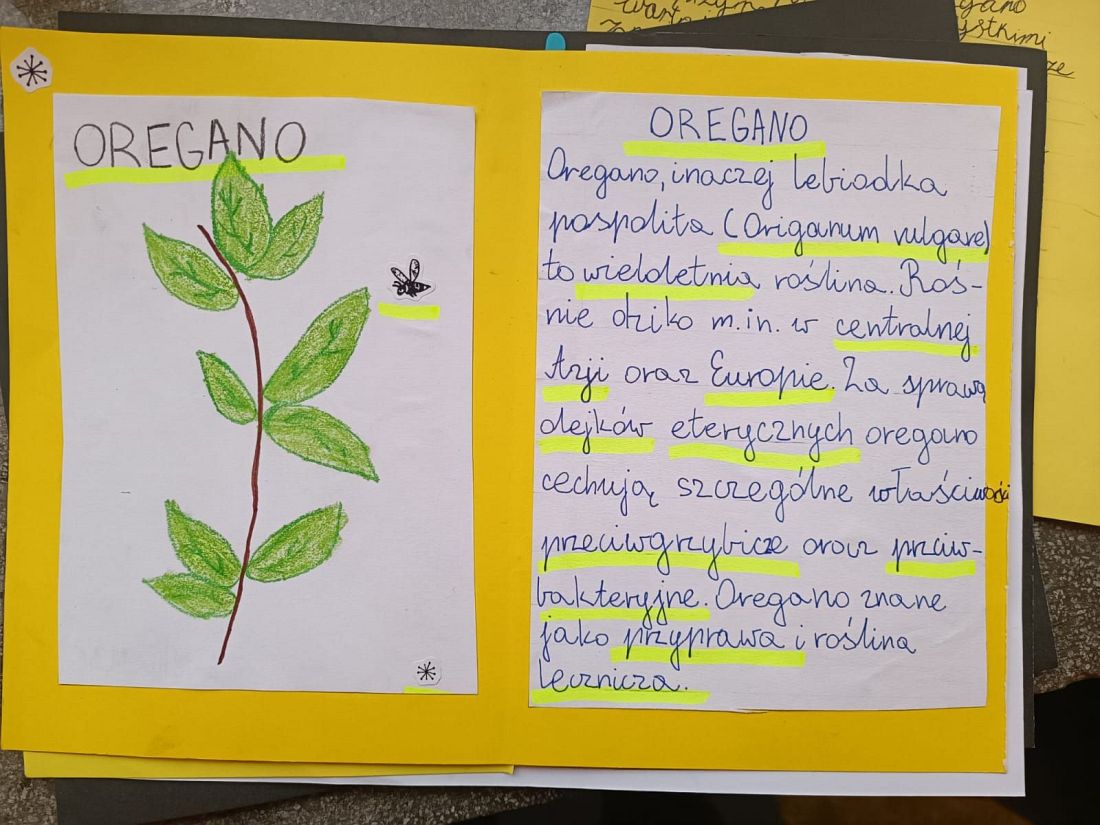 OREGANO
OREGANO
Oregano, inaczej lebiodka
pospolita (Origanum vulgare)
to wieloletnia roślina. Roś-
nie dziko m.in. w centralnej
Azji oraz Europie. Za sprawą
olejków eterycznych oregano
cechują szczególne właściwości
przeciwgrzybicze oraz przciw-
bakteryjne. Oregano znane
jako przyprawa i roślina
lecznicza.
ystkimi